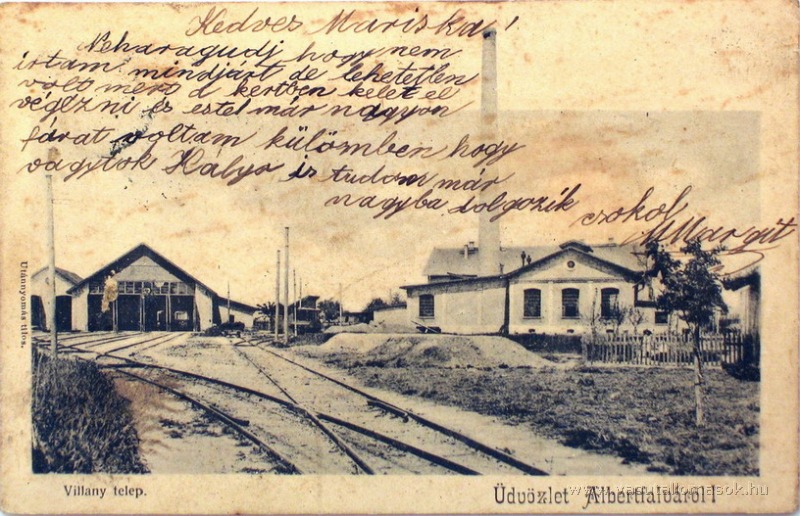 Kedves Mariska!
Neharagudj hogy nem
irtam mindjárt de lehetetlen
volt mert a kertben kelet el
végezni és estel már nagyon
fárat voltam külömben hogy
vagytok Halyo is tudom már
nagyba dolgozik
czokol
M Margit
Utánnyomás tilos.
Villany telep.
Üdvözlet Albertfalváról!
www.vasutallomasok.hu